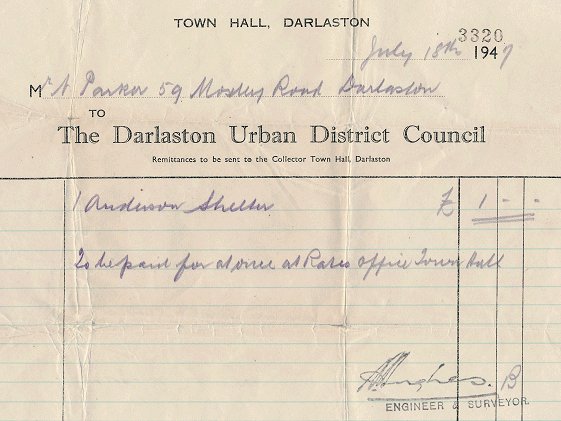 TOWN HALL, DARLASTON
3320
July 18th 1947
Mr N Parker 59 Moxley Road Darlaston
TO
The Darlaston Urban District Council
Remittances to be sent to the Collector Town Hall, Darlaston
1 Anderson Shelter £ 1 - -
To be paid for at once at Rates Office Town Hall
Hughes. B
ENGINEER & SURVEYOR.